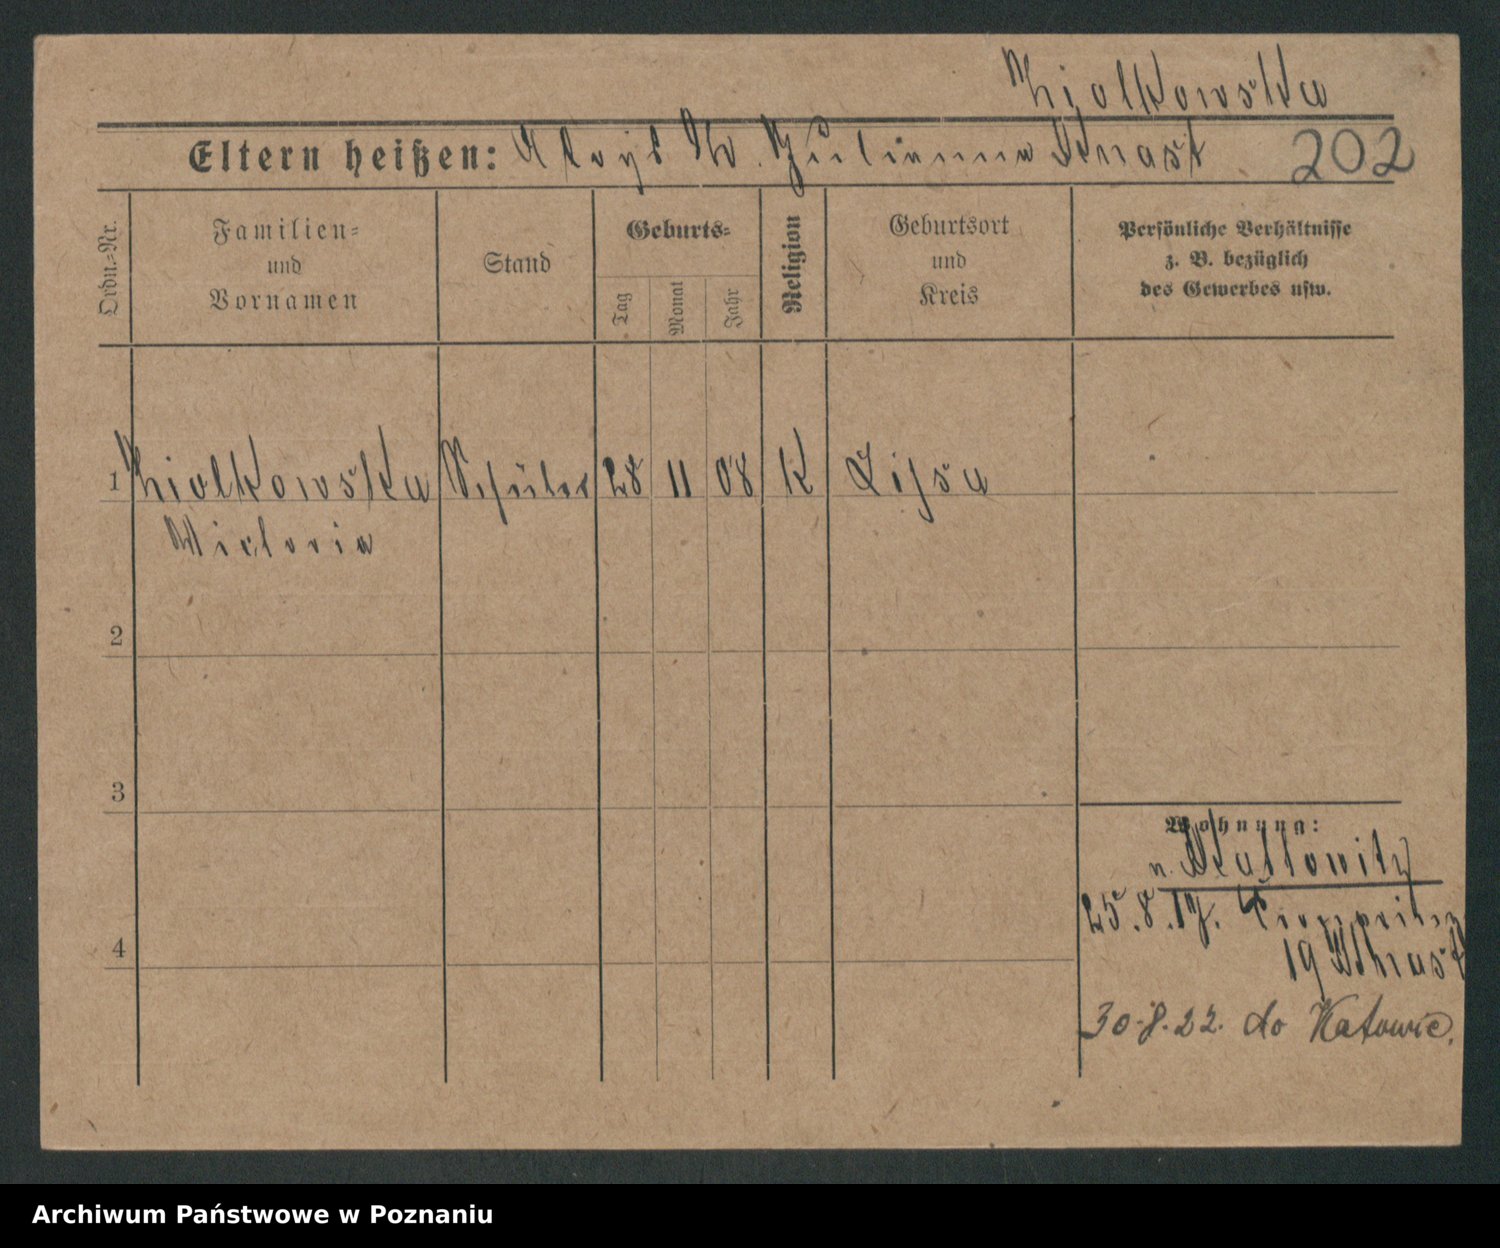 Ziolkowska
Eltern heißen: Aloys Th. Julianna Knast 202
Ordn.-Nr.
Familien-
und
Vornamen
Stand
Geburts-
Tag
Monat
Jahr
Religion
Geburtsort
und
Kreis
Persönliche Verhältnisse
z. B. bezüglich
des Gewerbes usw.
1 Ziolkowska Schüler 28 11 08 K Lissa
Victoria
2
3
4
Wohnung:
n. Kattowitz
25.8.17.
19 Knast
30.8.22. do Katowic.
Archiwum Państwowe w Poznaniu